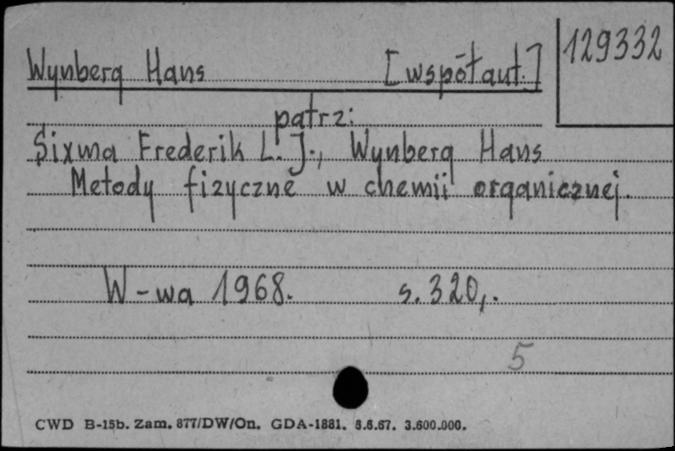 Wynberg Hans [współaut.] 129332
patrz:
Sixma Frederik L. J., Wynberg Hans
Metody fizyczne w chemii organicznej.
W-wa 1968. s. 320,.
5
CWD B-15b. Zam. 877/DW/On. GDA-1881. 8.6.67. 3.600.000.